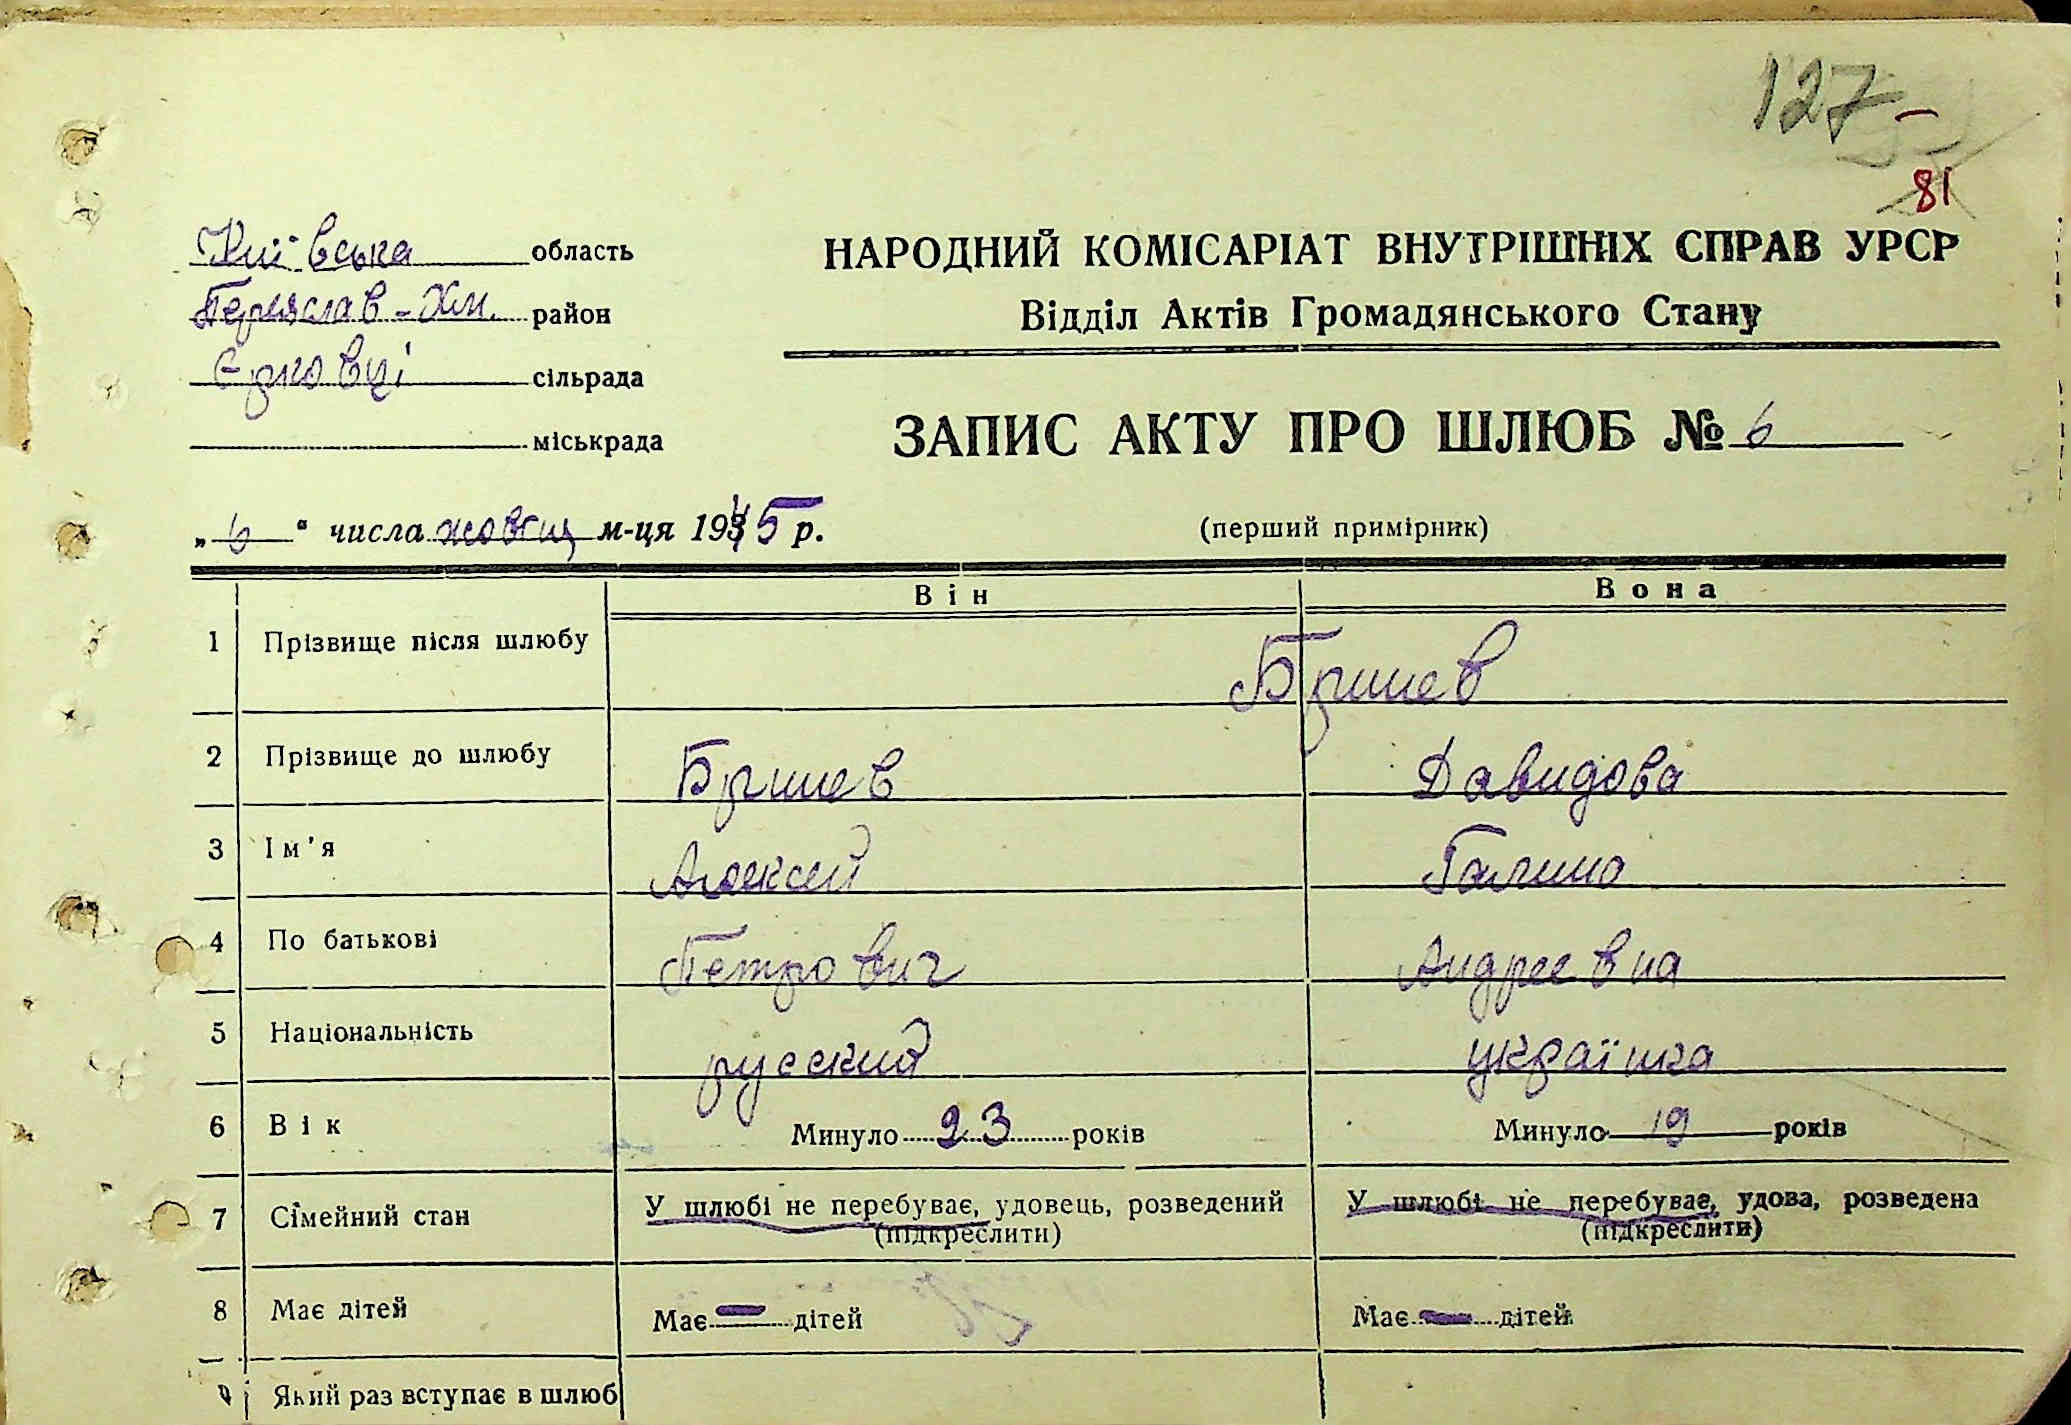 127
81
Київська область
Переяслав-Хм. район
Єрковці сільрада
міськрада
НАРОДНИЙ КОМІСАРІАТ ВНУТРІШНІХ СПРАВ УРСР
Відділ Актів Громадянського Стану
ЗАПИС АКТУ ПРО ШЛЮБ № 6
„6“ числа жовтня м-ця 1945 р.
(перший примірник)
Він Вона
1 Прізвище після шлюбу
2 Прізвище до шлюбу Давидова
3 Ім'я Алексей Галина
4 По батькові Петрович Андреевна
5 Національність русский українка
6 Вік Минуло 23 років Минуло 19 років
7 Сімейний стан У шлюбі не перебуває, удовець, розведений У шлюбі не перебуває, удова, розведена
(підкреслити) (підкреслити)
8 Має дітей Має — дітей Має — дітей
9 Який раз вступає в шлюб